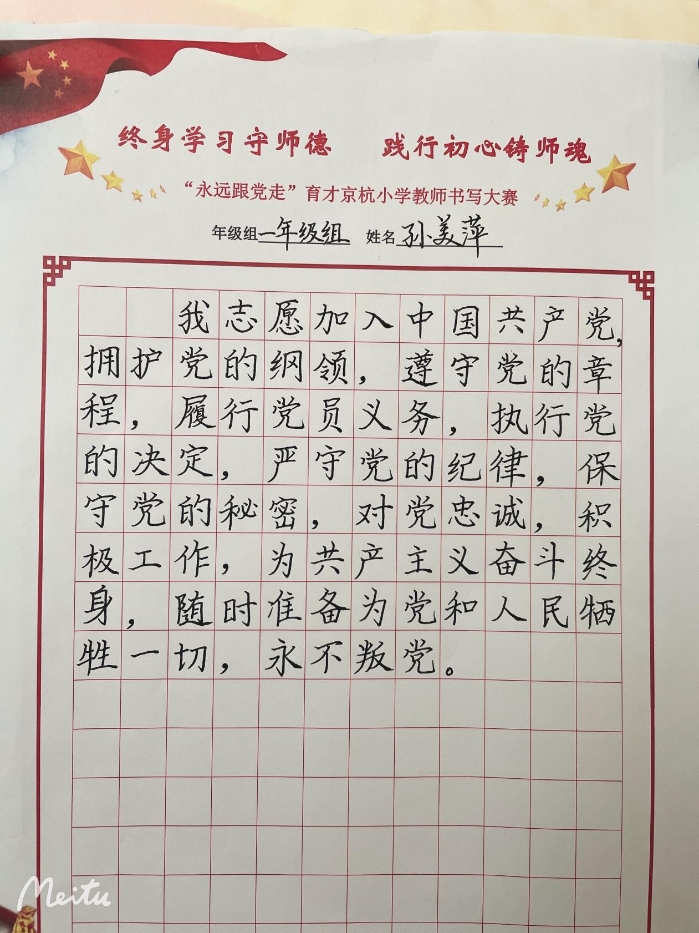 终身学习守师德 践行初心铸师魂
“永远跟党走”育才京杭小学教师书写大赛
年级组一年级组 姓名孙美萍
我志愿加入中国共产党，
拥护党的纲领，遵守党的章
程，履行党员义务，执行党
的决定，严守党的纪律，保
守党的秘密，对党忠诚，积
极工作，为共产主义奋斗终
身，随时准备为党和人民牺
牲一切，永不叛党。
Meitu